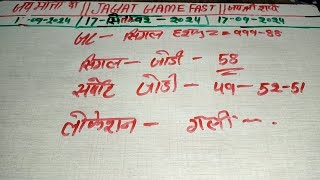 जय माता दी || JAGAT GAME FAST || जय श्री राधे
1-09-2024 || 17-सितम्बर-2024 || 17-09-2024
सिंगल हरुफ = 999-88
सिंगल - जोडी - 58
सपोट जोडी - 49-52-51
लोकेशन - गली -